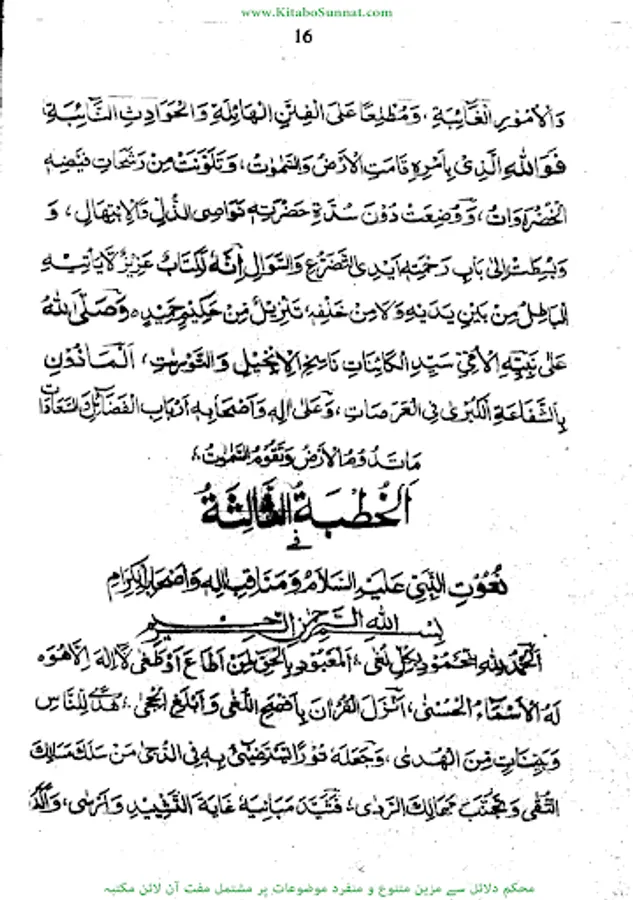 www.KitaboSunnat.com
16
وَالْأُمُوْرِ الْغَائِبَةِ، وَمُطَّلِعًا عَلَى الْفِتَنِ الْهَائِلَةِ وَالْحَوَادِثِ النَّائِبَةِ،
فَوَاللهِ الَّذِىْ بِأَمْرِهٖ قَامَتِ الْأَرْضُ وَالسَّمٰوٰتُ، وَتَلَوَّنَتْ مِنْ رَشَحَاتِ فَيْضِهِ
الْخُضْرَاوَاتُ، وَوُضِعَتْ دُوْنَ سُدَّةِ حَضْرَتِهٖ نَوَاصِى الذُّلِّ وَالْاِبْتِهَالِ، وَ
وَبُسِطَتْ اِلٰى بَابِ رَحْمَتِهٖ اَيْدِى التَّضَرُّعِ وَالسُّوَالِ اِنَّهٗ لَكِتَابٌ عَزِيْزٌ لَا يَأْتِيْهِ
الْبَاطِلُ مِنْ بَيْنِ يَدَيْهِ وَلَا مِنْ خَلْفِهٖ، تَنْزِيْلٌ مِنْ حَكِيْمٍ حَمِيْدٍ، وَصَلَّى اللهُ
عَلٰى نَبِيِّهِ الْأُمِّيِّ سَيِّدِ الْكَائِنَاتِ نَاسِخِ الْاِنْجِيْلِ وَالتَّوْرٰىةِ، الْمَأْذُوْنِ
بِالشَّفَاعَةِ الْكُبْرٰى فِى الْعَرَصَاتِ، وَعَلٰى اٰلِهٖ وَاَصْحَابِهٖ اَرْبَابِ الْفَضَائِلِ وَالسَّعَادَاتِ
مَا تَدُوْمُ الْأَرْضُ وَتَقُوْمُ السَّمٰوٰتُ،
اَلْخُطْبَةُ الثَّالِثَةُ
فِى
نُعُوْتِ النَّبِيِّ عَلَيْهِ السَّلَامُ وَمَنَاقِبِ اٰلِهٖ وَاَصْحَابِهِ الْكِرَامِ
بِسْمِ اللهِ الرَّحْمٰنِ الرَّحِيْمِ
اَلْحَمْدُ لِلّٰهِ الْمَحْمُوْدِ بِكُلِّ لُغٰى، اَلْمَعْبُوْدِ بِالْحَقِّ لِمَنْ اَطَاعَ اَوْ طَغٰى لَا اِلٰهَ اِلَّا هُوَ
لَهُ الْأَسْمَاءُ الْحُسْنٰى، اَنْزَلَ الْقُرْاٰنَ بِاَفْصَحِ اللُّغٰى وَاَبْلَغِ الْحِجٰى، هُدًى لِلنَّاسِ
وَبَيِّنَاتٍ مِنَ الْهُدٰى، وَجَعَلَهٗ نُوْرًا يَسْتَضِيْئُ بِهٖ فِى الدُّجٰى مَنْ سَلَكَ مَسَالِكَ
التُّقٰى وَتَجَنَّبَ مَهَالِكَ الرَّدٰى، فَشَيَّدَ مَبَانِيَهٗ غَايَةَ التَّشْيِيْدِ وَاَرْسٰى،
محکم دلائل سے مزین متنوع و منفرد موضوعات پر مشتمل مفت آن لائن مکتبہ